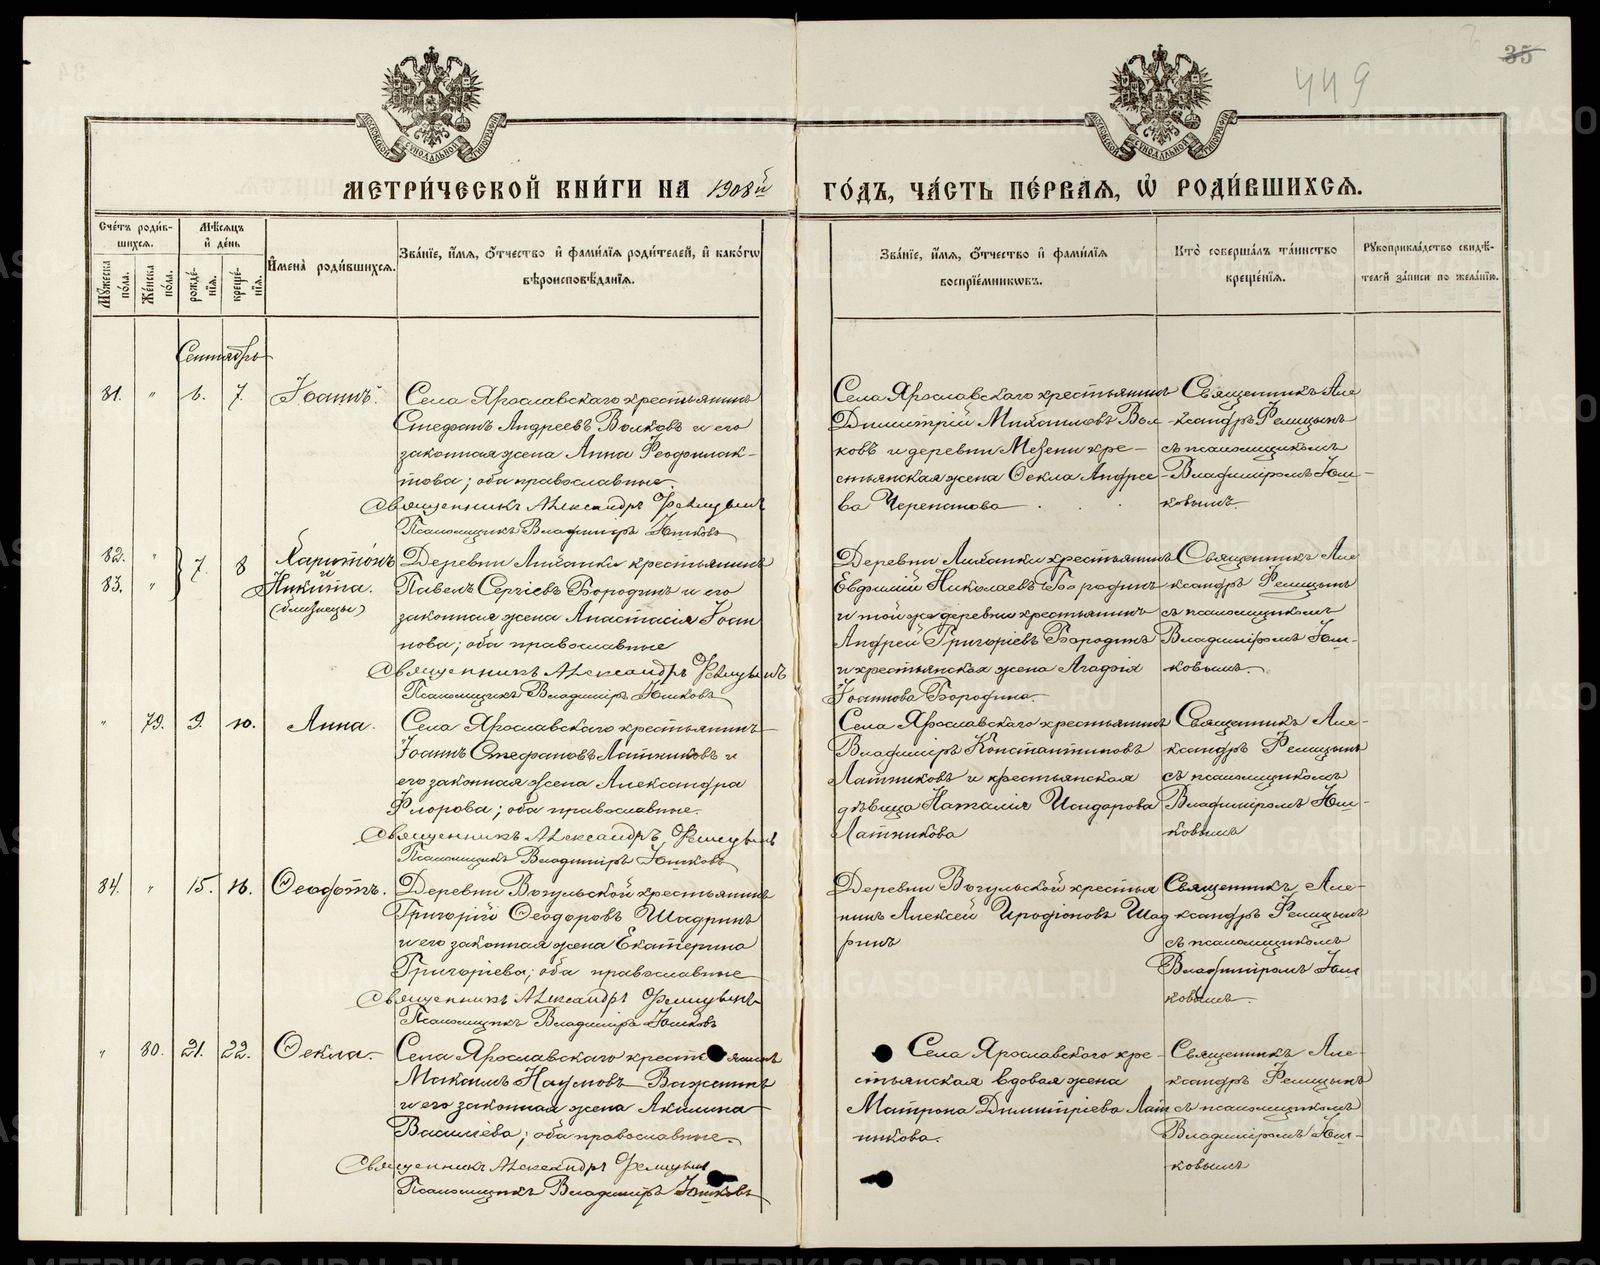 35
449
МЕТРИ́ЧЕСКОЙ КНИ́ГИ НА 1908й ГО́ДЪ, ЧА́СТЬ ПЕ́РВАЯ, Ѡ҆ РОДИ́ВШИХСЯ.
Сче́тъ роди́вшихся.
Му́жеска по́ла.
Же́нска по́ла.
Мѣ́сяцъ и҆ де́нь
рожде́нїя.
креще́нїя.
И҆мена̀ роди́вшихся.
Зва́нїе, и҆́мя, ѻ҆́тчество и҆ фами́лїя роди́телей, и҆ како́гѡ
вѣроисповѣ́данїя.
Зва́нїе, и҆́мя, ѻ҆́тчество и҆ фами́лїя
воспрїе́мникѡвъ.
Кто̀ соверша́лъ та́инство
креще́нїя.
Рꙋкоприкла́дство свидѣ́-
телей за́писи по жела́нїю.
Сентябрь
81. " 6. 7. Іоаннъ.
Села Ярославскаго крестьянинъ
Стефанъ Андреевъ Волковъ и его
законная жена Анна Феофилак-
това; оба православные.
Священникъ Александръ Фелицынъ
Псаломщикъ Владиміръ Юшковъ
Села Ярославскаго крестьянинъ
Димитрій Михаиловъ Вол-
ковъ и деревни Мезени кре-
стьянская жена Ѳекла Андрее-
ва Черепанова
Священникъ Але
ксандръ Фелицынъ
съ псаломщикомъ
Владиміромъ Юш-
ковымъ.
82. "
83. "
7. 8
Харитонъ
и
Никита.
(близнецы)
Деревни Лиханки крестьянинъ
Павелъ Сергіевъ Бородинъ и его
законная жена Анастасія Іоан
нова; оба православные
Священникъ Александръ Фелицынъ
Псаломщикъ Владиміръ Юшковъ
Деревни Лиханки крестьянинъ
Евфимій Николаевъ Бородинъ
и той же деревни крестьянинъ
Андрей Григоріевъ Бородинъ
и крестьянская жена Агафія
Іоаннова Бородина.
Священникъ Але
ксандръ Фелицынъ
съ псаломщикомъ
Владиміромъ Юш-
ковымъ.
" 79. 9. 10. Анна.
Села Ярославскаго крестьянинъ
Іоаннъ Стефановъ Латниковъ и
его законная жена Александра
Флорова; оба православные.
Священникъ Александръ Фелицынъ
Псаломщикъ Владиміръ Юшковъ
Села Ярославскаго крестьянинъ
Владиміръ Константиновъ
Латниковъ и крестьянская
дѣвица Наталія Исидорова
Латникова
Священникъ Але-
ксандръ Фелицынъ
съ псаломщикомъ
Владиміромъ Юш-
ковымъ
84. " 15. 16. Ѳеофотъ.
Деревни Вогульской крестьянинъ
Григорій Ѳеодоровъ Шадринъ
и его законная жена Екатерина
Григоріева; оба православные
Священникъ Александръ Фелицынъ
Псаломщикъ Владиміръ Юшковъ
Деревни Вогульской крестья
нинъ Алексей Иродіоновъ Шад
ринъ
Священникъ Але-
ксандръ Фелицынъ
съ псаломщикомъ
Владиміромъ Юш
ковымъ.
" 80. 21. 22. Ѳекла.
Села Ярославскаго крестьянинъ
Максимъ Наумовъ Важенинъ
и его законная жена Акилина
Василіева; оба православные.
Священникъ Александръ Фелицынъ
Псаломщикъ Владиміръ Юшковъ
Села Ярославскаго кре-
стьянская вдовая жена
Матрона Димитріева Лат
никова.
Священникъ Але-
ксандръ Фелицынъ
съ псаломщикомъ
Владиміромъ Юш-
ковымъ
METRIKI.GASO-URAL.RU